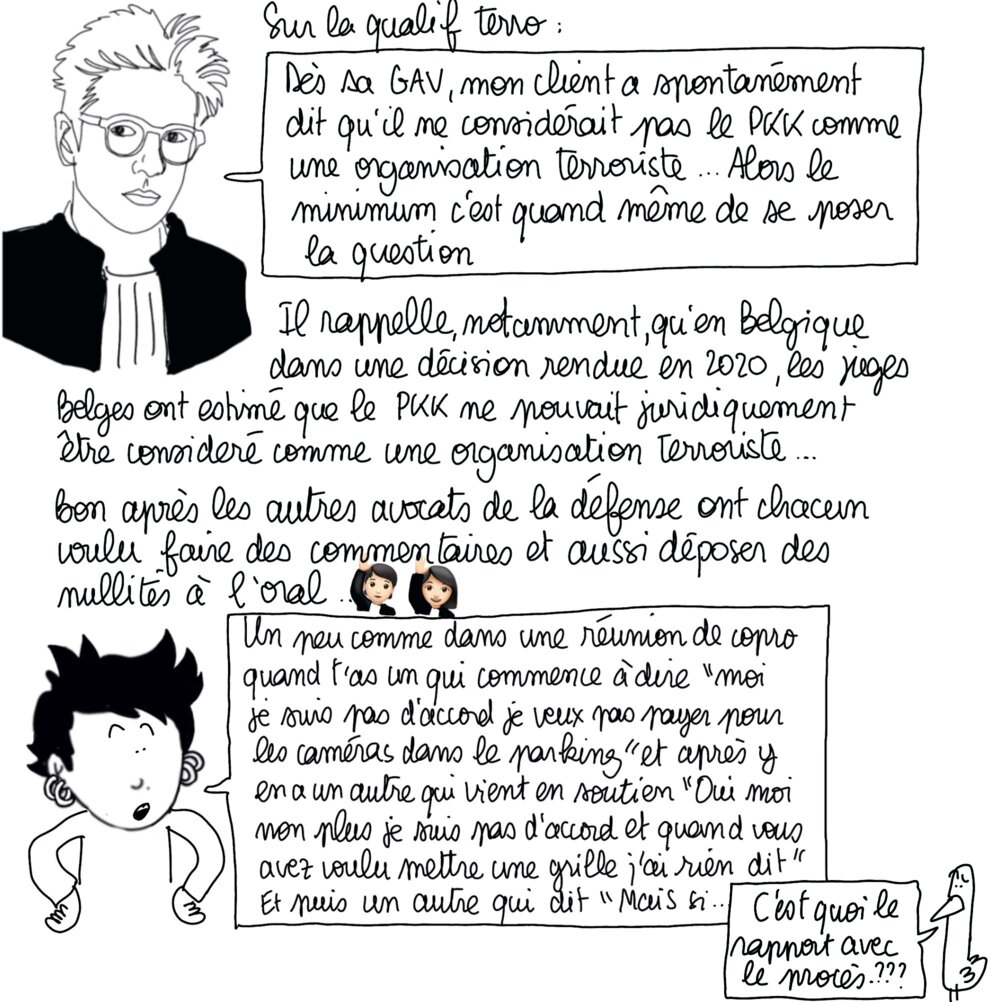 Sur la qualif terro :
Dès sa GAV, mon client a spontanément
dit qu'il ne considérait pas le PKK comme
une organisation terroriste ... Alors le
minimum c'est quand même de se poser
la question
Il rappelle, notamment, qu'en Belgique
dans une décision rendue en 2020, les juges
Belges ont estimé que le PKK ne pouvait juridiquement
être consideré comme une organisation terroriste ...
Bon après les autres avocats de la défense ont chacun
voulu faire des commentaires et aussi déposer des
nullités à l'oral ..
Un peu comme dans une réunion de copro
quand t'as un qui commence à dire "moi
je suis pas d'accord je veux pas payer pour
les caméras dans le parking" et après y
en a un autre qui vient en soutien "Oui moi
non plus je suis pas d'accord et quand vous
avez voulu mettre une grille j'ai rien dit"
Et puis un autre qui dit "Mais si...
C'est quoi le
rapport avec
le procès.???